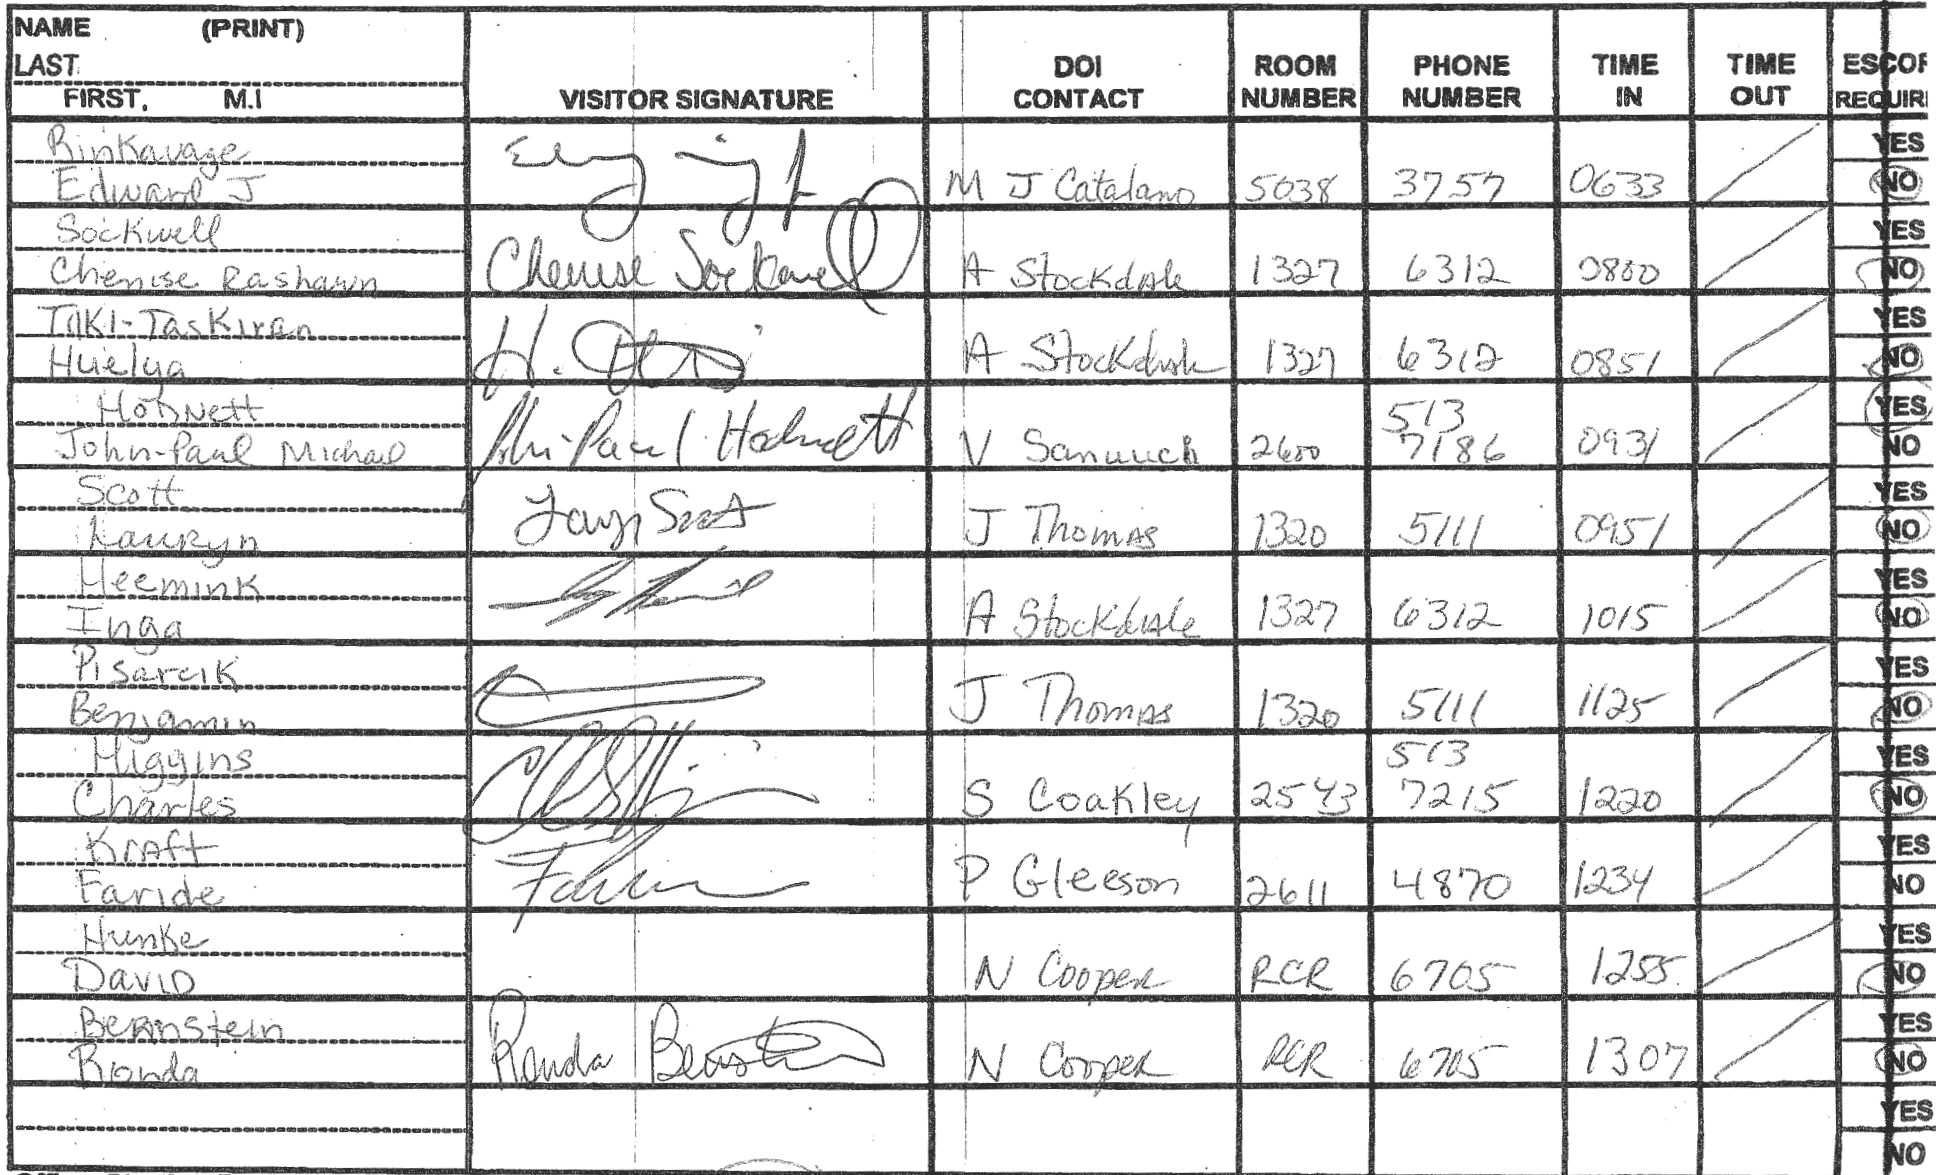 NAME (PRINT)
LAST.
FIRST, M.I
VISITOR SIGNATURE
DOI CONTACT
ROOM NUMBER
PHONE NUMBER
TIME IN
TIME OUT
ESCOR REQUIRI
Rinkavage YES
Edward J M J Catalano 5038 3757 0633 NO
Sockwell YES
Chenise Rashawn Chenise Sockwell A Stockdale 1327 6312 0800 NO
Tilki-Taskiran YES
Huelya H. A Stockdale 1327 6312 0851 NO
Hodnett 513 YES
John-Paul Michael John-Paul Hodnett V 2600 7186 0931 NO
Scott YES
Lauryn Scott J Thomas 1320 5111 0951 NO
Heemink YES
Inga A Stockdale 1327 6312 1015 NO
Pisarcik YES
Benjamin J Thomas 1320 5111 1125 NO
Higgins 513 YES
Charles S Coakley 2543 7215 1220 NO
Kraft YES
Faride P Gleeson 2611 4870 1234 NO
Hunke YES
David N Cooper RCR 6705 1255 NO
Bernstein YES
Ronda Ronda Bernstein N Cooper RCR 6705 1307 NO
YES
NO